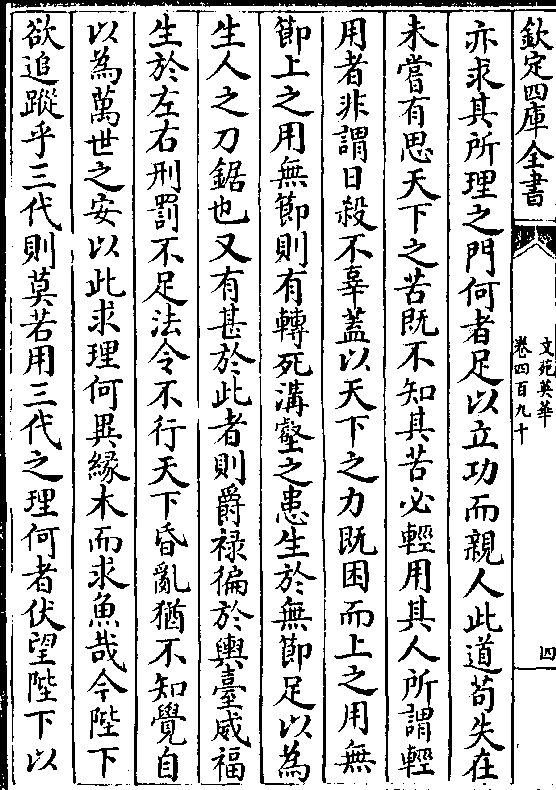 欽定四庫全書
文苑英華
卷四百九十
四
亦求其所理之門何者足以立功而親人此道苟失在
未嘗有思天下之苦既不知其苦必輕用其人所謂輕
用者非謂日殺不辜蓋以天下之力既困而上之用無
節上之用無節則有轉死溝壑之患生於無節足以為
生人之刀鋸也又有甚於此者則爵祿徧於輿臺威福
生於左右刑罰不足法令不行天下昏亂猶不知覺自
以為萬世之安以此求理何異緣木而求魚哉今陛下
欲追蹤乎三代則莫若用三代之理何者伏望陛下以